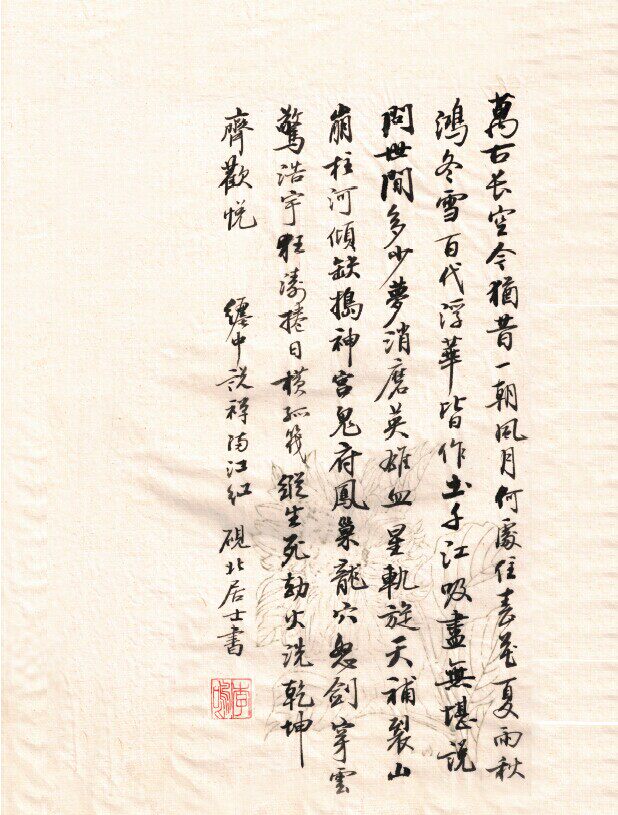 萬古长空今猶昔一朝風月何處住春花夏雨秋
鴻冬雪百代浮華皆作土千江吸盡無堪説
問世間多少夢消磨英雄血星軌旋天補裂山
崩柱河傾缺搗神宮鬼府鳳巢龍穴怒劍穿雲
驚浩宇狂濤捲日横孤筏縱生死劫火洗乾坤
齊歡悦
纏中説禅满江红 硯北居士書